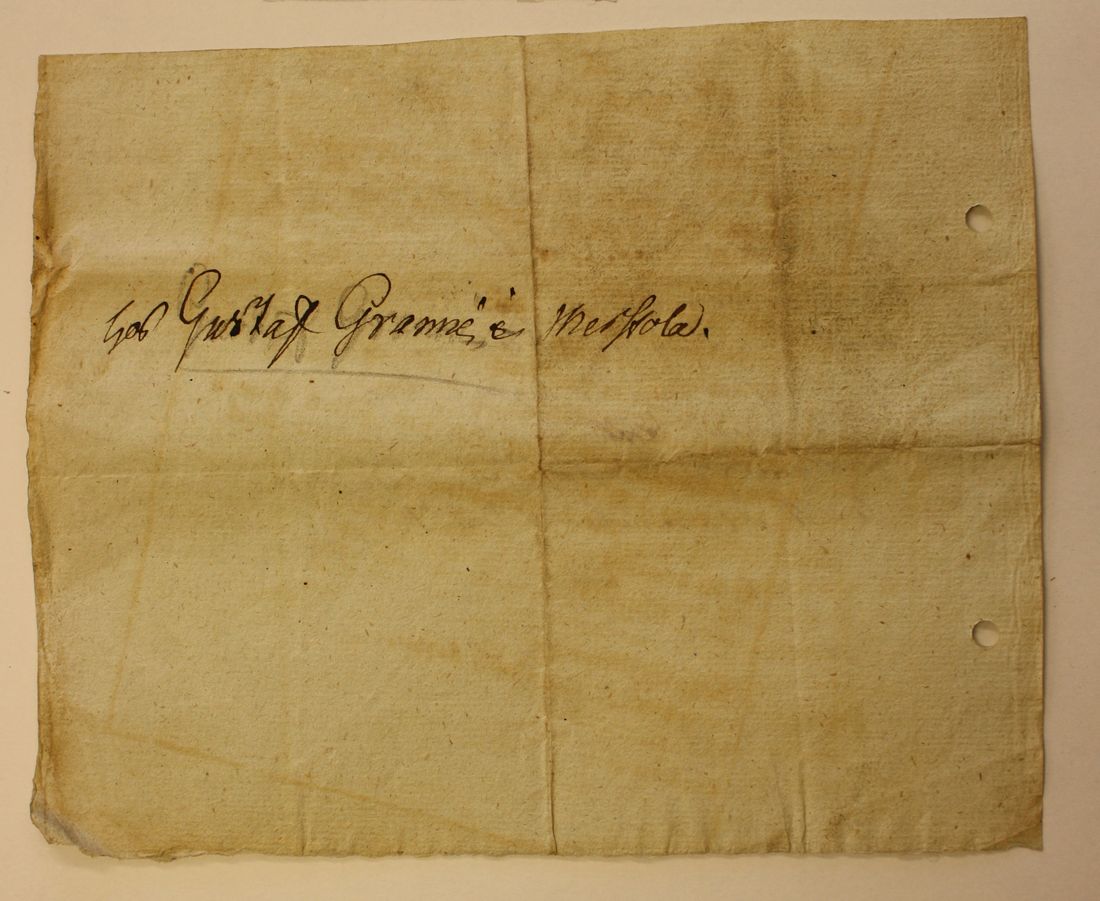 hos Gustaf Granné i Messola.